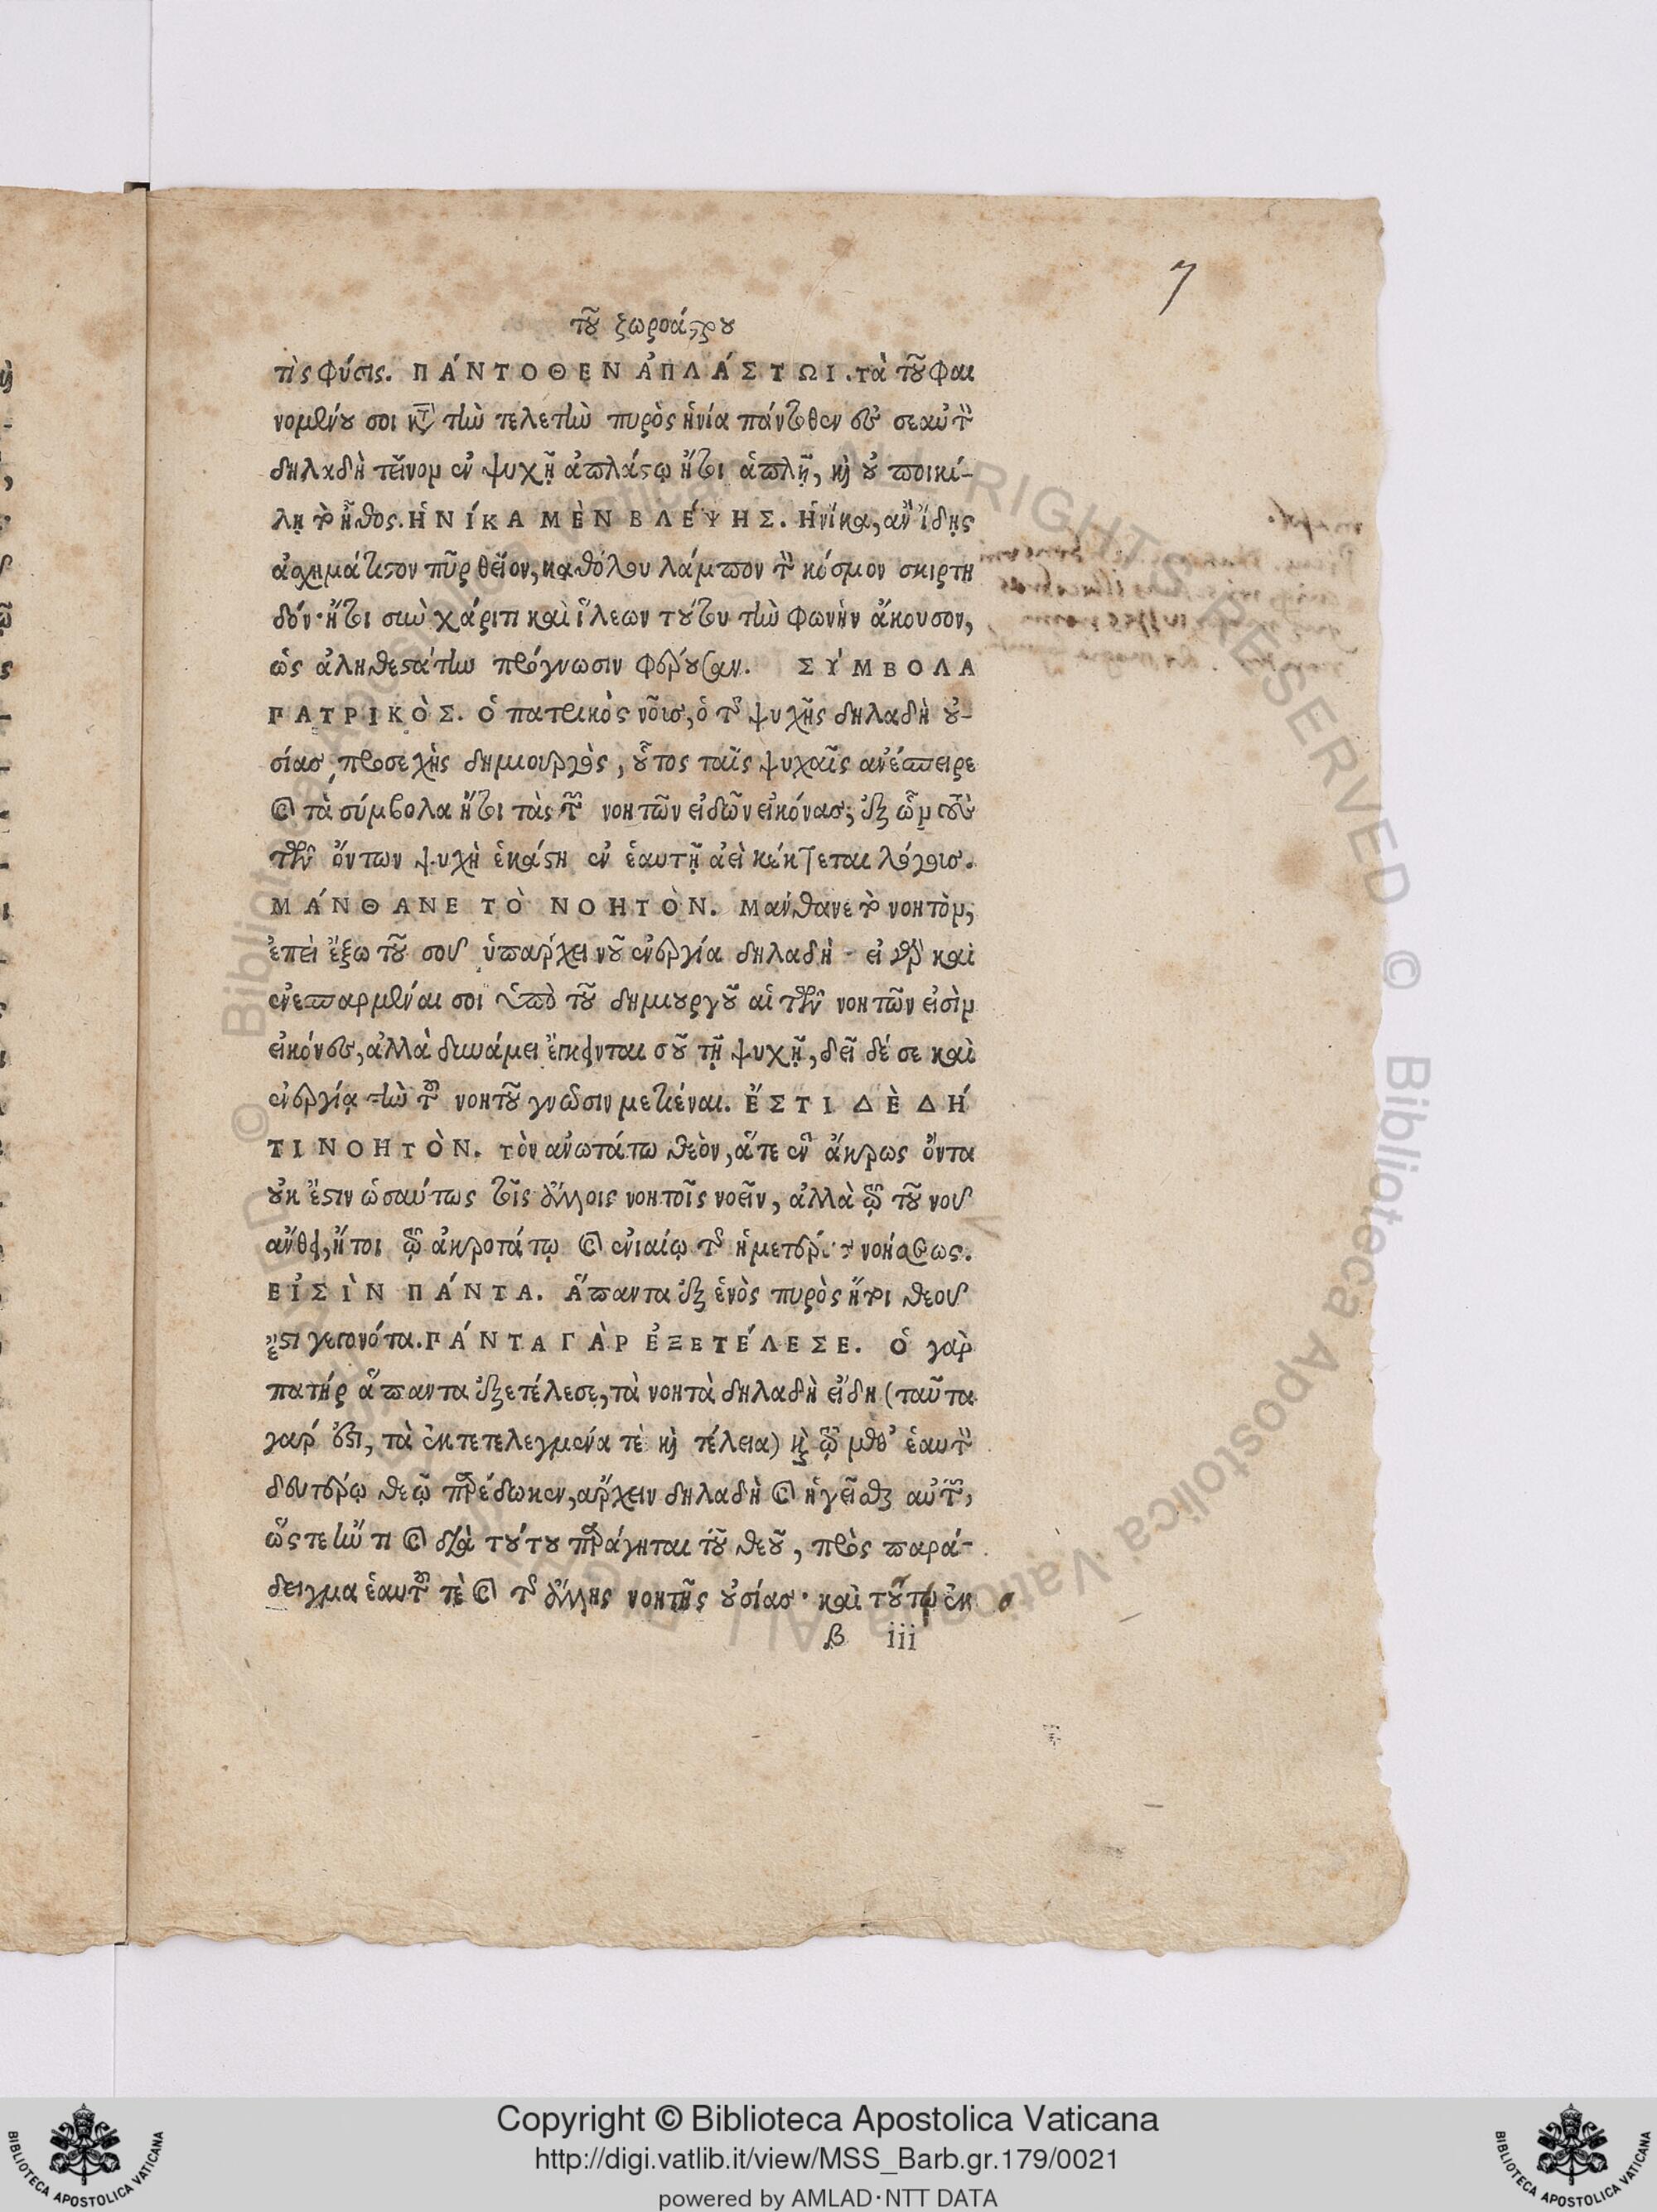 7
τοῦ ζωροάστρου
τὶς φύσις. ΠΆΝΤΟΘΕΝ ἈΠΛΆΣΤΩΙ. τὰ τοῦ φαι
νομένου σοι κατὰ τὴν τελετὴν πυρὸς ἡνία πάντοθεν ἐπὶ σεαυτὸν
δηλαδὴ τεῖνον ἐν ψυχῇ ἀπλάστῳ ἤτοι ἁπλῇ, καὶ οὐ ποικί-
λῃ τὸ ἦθος. ἩΝΊΚΑ ΜῈΝ ΒΛΈΨΗΣ. Ἡνίκα, ἂν ἴδῃς
ἀσχημάτιστον πῦρ θεῖον, καθόλου λάμπον τὸν κόσμον σκιρτη
δόν· ἤτοι σὺν χάριτι καὶ ἵλεων τούτου τὴν φωνὴν ἄκουσον,
ὡς ἀληθεστάτην πρόγνωσιν φέρουσαν. ΣΎΜΒΟΛΑ
ΠΑΤΡΙΚῸΣ. ὁ πατρικὸς νόις, ὁ τῆς ψυχῆς δηλαδὴ οὐ-
σίας προσεχὴς δημιουργὸς, οὗτος ταῖς ψυχαῖς ἀνέσπειρε
καὶ τὰ σύμβολα ἤτοι τὰς τῶν νοητῶν εἰδῶν εἰκόνας; ἐξ ὧν τοὺς
τῶν ὄντων ψυχὴ ἑκάστη ἐν ἑαυτῇ ἀεὶ κέκτεται λόγοις.
ΜΆΝΘΑΝΕ ΤῸ ΝΟΗΤῸΝ. Μανθανε τὸ νοητὸν,
ἐπεὶ ἔξω τοῦ σοῦ ὑπαρχει νοῦ ἐνεργία δηλαδὴ · εἰ γὰρ καὶ
ἐνεσπαρμέναι σοι ὑπὸ τοῦ δημιουργοῦ αἱ τῶν νοητῶν εἰσὶν
εἰκόνες, ἀλλὰ δυνάμει ἔγκεινται σοῦ τῇ ψυχῇ, δεῖ δέ σε καὶ
ἐνεργίᾳ τὴν τοῦ νοητοῦ γνῶσιν μετιέναι. ἜΣΤΙ ΔῈ ΔΉ
ΤΙ ΝΟΗΤῸΝ. τὸν ἀνωτάτω θεὸν, ἅτε ἓν ἄκρως ὄντα
οὐκ ἔστιν ὡσαύτως τοῖς ἄλλοις νοητοῖς νοεῖν, ἀλλὰ τῷ τοῦ νοῦ
ἄνθει, ἤτοι τῷ ἀκροτάτῳ καὶ ἑνιαίῳ τῆς ἡμετέρας νοήσεως.
ΕἸΣῚΝ ΠΆΝΤΑ. Ἅπαντα ἐξ ἑνὸς πυρὸς ἤτοι θεοῦ
ἐστι γεγονότα. ΠΆΝΤΑ ΓᾺΡ ἘΞΕΤΈΛΕΣΕ. Ὁ γὰρ
πατήρ ἅπαντα ἐξετέλεσε, τὰ νοητὰ δηλαδὴ εἴδη (ταῦτα
γαρ ἐστι, τὰ ἐκτετελεγμενα τὲ καὶ τέλεια) καὶ τῷ μεθ’ ἑαυτὸν
δευτέρῳ θεῷ παρέδωκεν, ἄρχειν δηλαδὴ καὶ ἡγεῖσθαι αὐτῶν,
ὥς τε ἤν τι καὶ διὰ τούτου παράγηται τοῦ θεοῦ, πρὸς παρά-
δειγμα ἑαυτοῦ τὲ καὶ τῆς ἄλλης νοητῆς οὐσίας· καὶ τούτῳ ἐκ
β iii
Copyright © Biblioteca Apostolica Vaticana
http://digi.vatlib.it/view/MSS_Barb.gr.179/0021
powered by AMLAD·NTT DATA